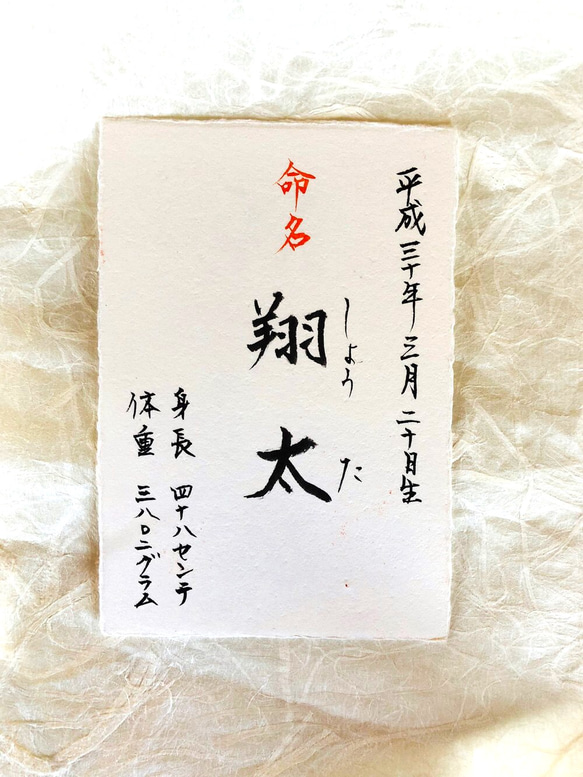 平成三十年三月二十日生
命名
翔太
しょうた
身長 四十八センチ
体重 三八〇二グラム